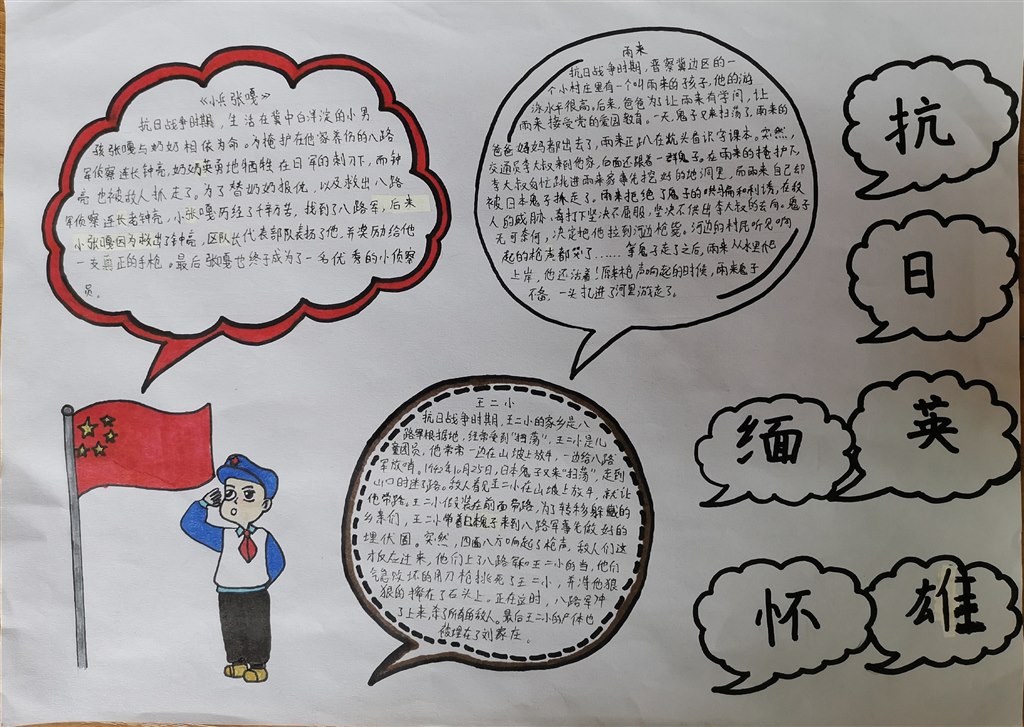 《小兵张嘎》
抗日战争时期，生活在冀中白洋淀的小男
孩张嘎与奶奶相依为命。为掩护在他家养伤的八路
军侦察连长钟亮，奶奶英勇地牺牲在日军的刺刀下，而钟
亮也被敌人抓走了。为了替奶奶报仇，以及救出八路
军侦察连长老钟亮，小张嘎历经了千辛万苦，找到了八路军，后来
小张嘎因为救出了钟亮，区队长代表部队表扬了他，并奖励给他
一支真正的手枪。最后张嘎也终于成为了一名优秀的小侦察
员。
雨来
抗日战争时期，晋察冀边区的一
个小村庄里有一个叫雨来的孩子，他的游
泳水平很高。后来，爸爸为了让雨来有学问，让
雨来接受党的爱国教育。一天，鬼子又来扫荡了，雨来的
爸爸妈妈都出去了，雨来正趴在炕头看识字课本。突然，
交通员李大叔来到他家，后面还跟着一群鬼子。在雨来的掩护下，
李大叔匆忙跳进雨来家事先挖好的地洞里，而雨来自己却
被日本鬼子抓走了。雨来拒绝了鬼子的哄骗和利诱，在敌
人的威胁、毒打下坚决不屈服，坚决不供出李大叔的去向。鬼子
无可奈何，决定把他拉到河边枪毙。河边的村民听见响
起的枪声都哭了……等鬼子走了之后，雨来从水里爬
上岸，他还活着！原来枪声响起的时候，雨来趁鬼子
不备，一头扎进了河里游走了。
王二小
抗日战争时期，王二小的家乡是八
路军根据地，经常受到“扫荡”，王二小是儿
童团员，他常常一边在山坡上放牛，一边给八路
军放哨，1942年10月25日，日本鬼子又来“扫荡”，走到
山口时迷了路。敌人看见王二小在山坡上放牛，就让
他带路。王二小假装在前面带路，为了转移躲藏的
乡亲们，王二小带着日本鬼子来到八路军事先做好的
埋伏圈。突然，四面八方响起了枪声，敌人们这
才反应过来，他们上了八路军和王二小的当，他们
气急败坏的用刀枪挑死了王二小，并将他狠
狠的摔在了石头上。正在这时，八路军冲
了上来，杀了所有的敌人。最后王二小的尸体也
被埋在了刘家庄。
抗
日
英
雄
缅
怀